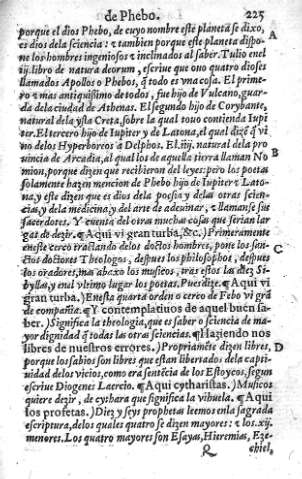 de Phebo. 225
porque el dios Phebo, de cuyo nombre este planeta se dixo,
es dios dela sciencia: z tambien porque este planeta dispo- A
ne los hombres ingeniosos z inclinados al saber. Tulio enel
iij. libro de natura deorum, escriue que ouo quatro dioses
llamados Apollos o Phebos, q̃ todo es vna cosa. El prime-
ro z mas antiquissimo de todos, fue hijo de Vulcano, guar-
da dela ciudad de Athenas. El segundo hijo de Corybante,
natural dela ysla Creta, sobre la qual touo contienda Iupi
ter. El tercero hijo de Iupiter y de Latona, el qual dizẽ q̃ vi
no delos Hyperboreos a Delphos. El .iiij. natural dela pro
uincia de Arcadia, al qual los de aquella tierra llaman No B
mion, porque dizen que recibieron del leyes: pero los poetas
solamente hazen mencion de Phebo hijo de Iupiter z Lato-
na, y este dizen que es dios dela poesia y delas otras scien-
cias, y dela medicina, y del arte de adeuinar, z llamase sus
sacerdotes. Y cuenta del otras muchas cosas que serian lar
gas de dezir. ¶Aqui vi gran turba, &c.) Primeramente
eneste cerco tractando delos doctos hombres, pone los san- C
ctos doctores Theologos, despues los philosophos, despues
los oradores, mas abaxo los musicos, tras estos las diez Si-
byllas, y enel vltimo lugar los poetas. Pues dize. ¶Aqui vi
gran turba.) Enesta quarta orden o cerco de Febo vi grã
de compañia. ¶Y contemplatiuos de aquel buen sa-
ber.) Significa la theologia, que es saber o sciencia de ma-
yor dignidad q̃ todas las otras sciencias. ¶Haziendo nos
libres de nuestros errores.) Propriamẽte dizen libres, D
porque los sabios son libres que estan libertados dela capti-
uidad delos vicios, como era sentẽcia de los Estoycos, segun
escriue Diogenes Laercio. ¶Aqui cytharistas.) Musicos
quiere dezir, de cythara que significa la vihuela. ¶Aqui
los profetas.) Diez y seys prophetas leemos enla sagrada
escriptura, delos quales quatro se dizen mayores: z los .xij.
menores. Los quatro mayores son Esayas, Hieremias, Eze-
R chiel,